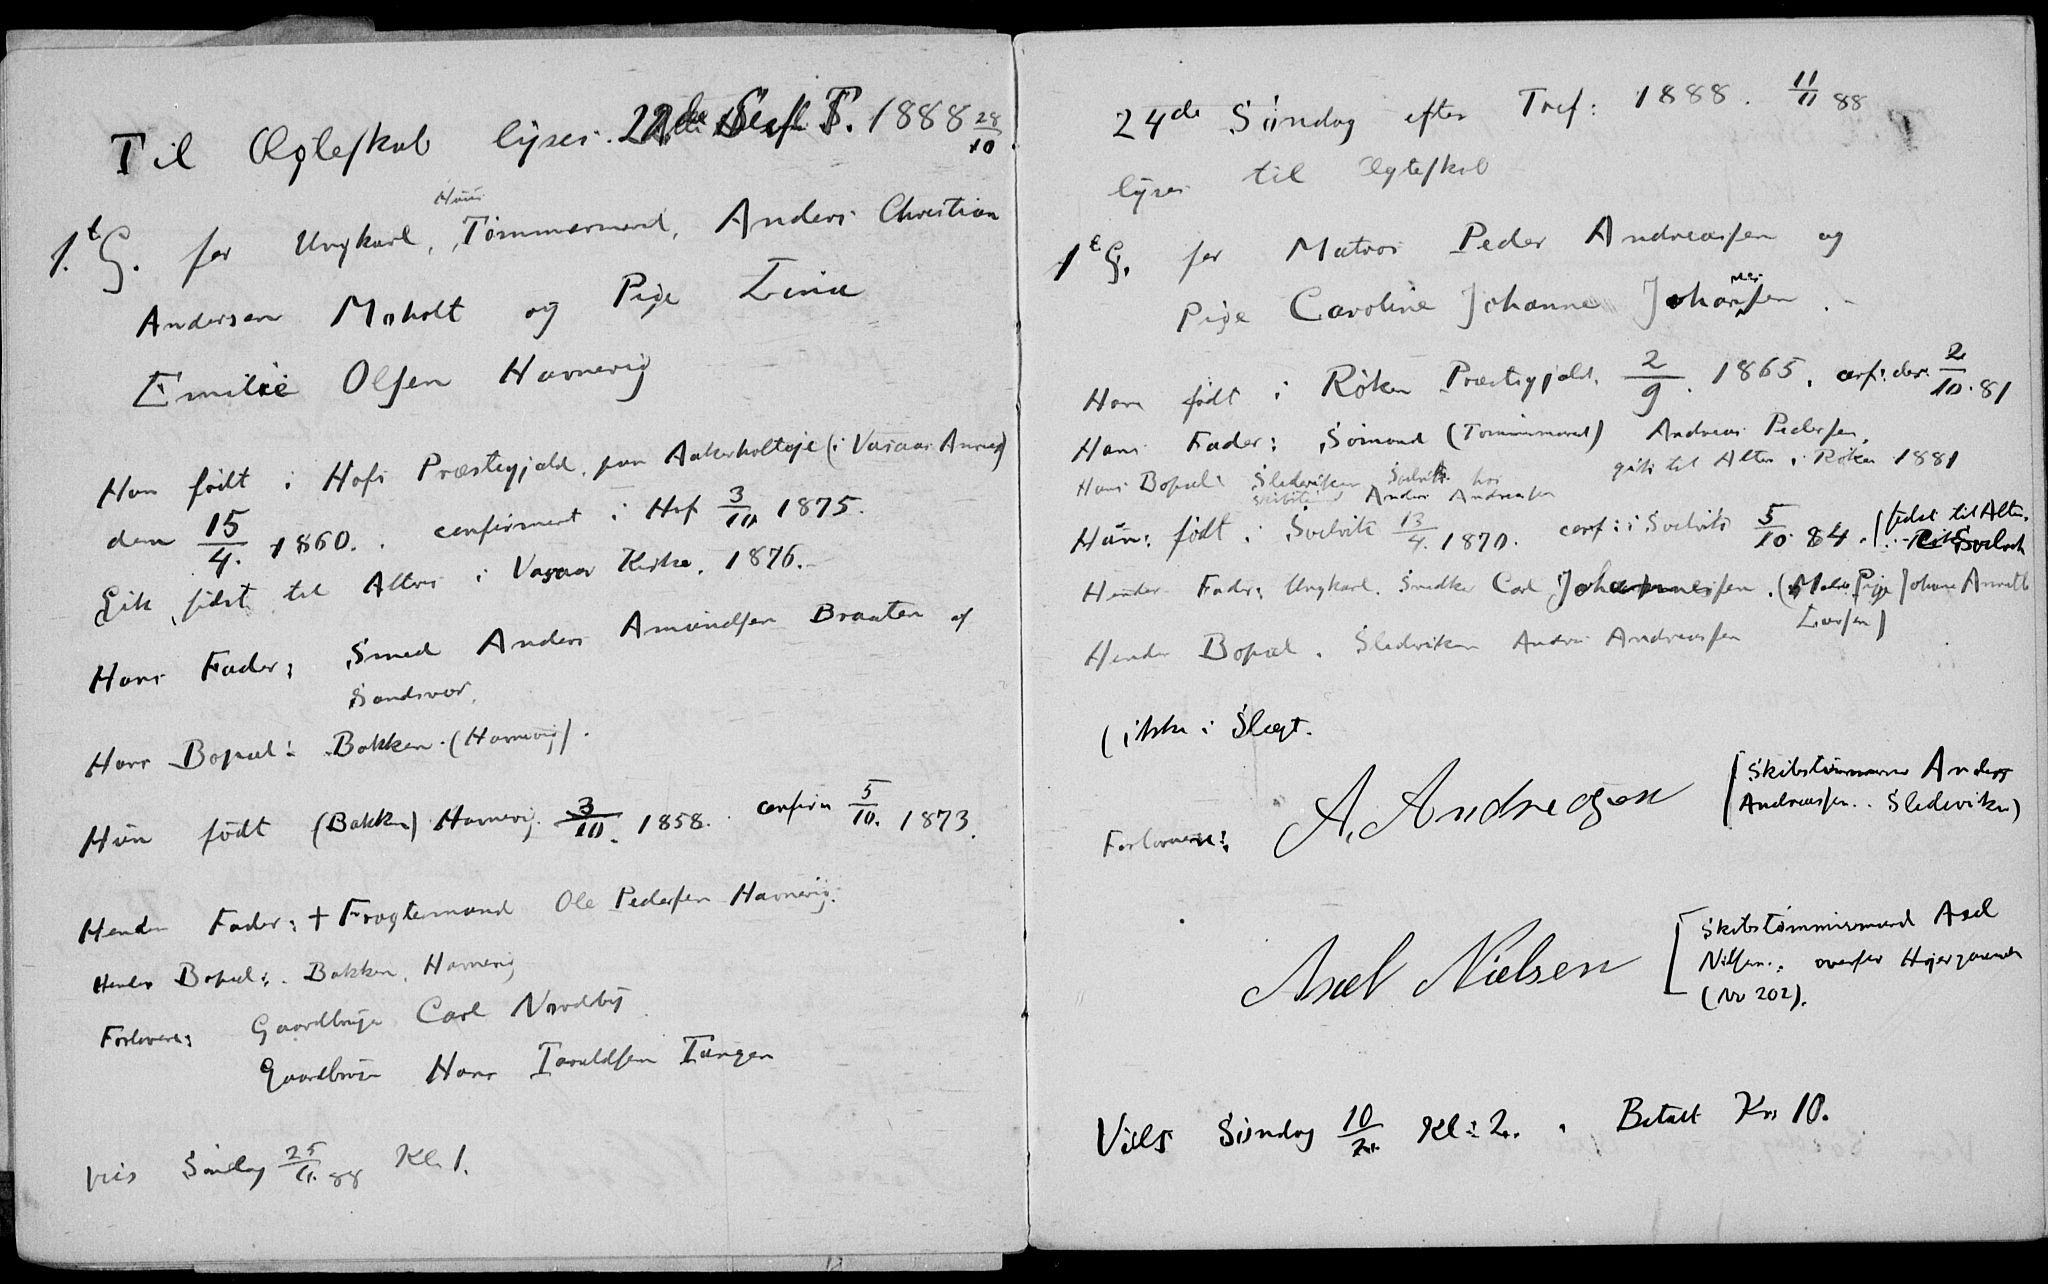 Til Ægteskab lyses. 22de S. eft. T. 1888 28/10
1.t G. for Ungkarl, Huus Tømmermand, Anders Christian
Andersen Moholt og Pige Lina
Emilie Olsen Havnevig
Han født i Hofs Præstegjæld, paa Aakerholteje (i Vasaas Annex)
den 15/4. 1860. confirmert i Hof 3/10 1875.
Gik sidst til Alters i Vasaas Kirke. 1876.
Hans Fader: Smed Anders Amundsen Braaten af
Sandsvær.
Hans Bopæl: Bakken (Havnevig).
Hun født (Bakken) Havnevig 3/10. 1858. confirm 5/10. 1873.
Hendes Fader: + Fragtemand Ole Pedersen Havnevig.
Hendes Bopæl: Bakken, Havnevig
Forlovere: Gaardbruger Carl Nordby
Gaardbruger Hans Taraldsen Tangen
Vies Søndag 25/11. 88 Kl. 1.
24de Søndag efter Tref: 1888. 11/11 88
lyses til Ægteskab
1t G. for Matros Peder Andreassen og
Pige Caroline Johanne Johannessen.
Han født i Røken Præstegjæld. 2/9. 1865. conf: der: 2/10. 81
Hans Fader: Sømand (Tømmermand) Andreas Pedersen,
gik til Alters i Røken 1881
Hans Bopæl: Sledeviken Svelvik hos
Anders Andreassen
Hun: født i Svelvik 13/4. 1870. conf: i Svelvik 5/10 84. (sidst til Alters
Svelvik
Hendes Fader: Ungkarl. Snedker Carl Johannessen. (Moder Pige Johane Annette
Larsen)
Hendes Bopæl. Sledeviken Anders Andreassen
(ikke i Slægt.
Forlovere: A. Andreasen [Skibstømmermand Anders
Andreassen.. Sledeviken)
Axel Nielsen [Skibstømmermand Axel
Nilsen., overfor
(No 202).
Vies Søndag 10/2. Kl: 2. Betalt Kr 10.